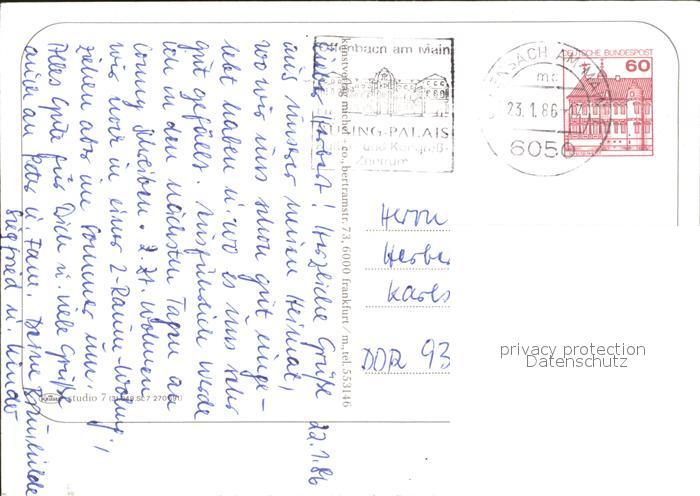 22.1.86
Lieber Herbert! Herzliche Grüße
aus unserer neuen Heimat,
wo wir uns schon gut einge-
lebt haben u. wo es uns sehr
gut gefällt. Ausführlich werde
ich in den nächsten Tagen an
schreiben. z. Zt. wohnen
wir noch in einer 2-Raum-Wohng.,
ziehen aber im Sommer um.
Alles Gute für Dich u. viele Grüße
auch an Peter u. Fam. Deine Brunhilde
Siegfried u. Kinder
studio 7
kunstverlag michel + co., bertramstr. 73, 6000 frankfurt / m., tel. 553146
Offenbach am Main
BÜSING-PALAIS
und Kongreß-
Zentrum
OFFENBACH AM MAIN
mc
23.1.86
6050
DEUTSCHE BUNDESPOST
60
Herrn
Herbe
Karls
DDR 93
privacy protection
Datenschutz